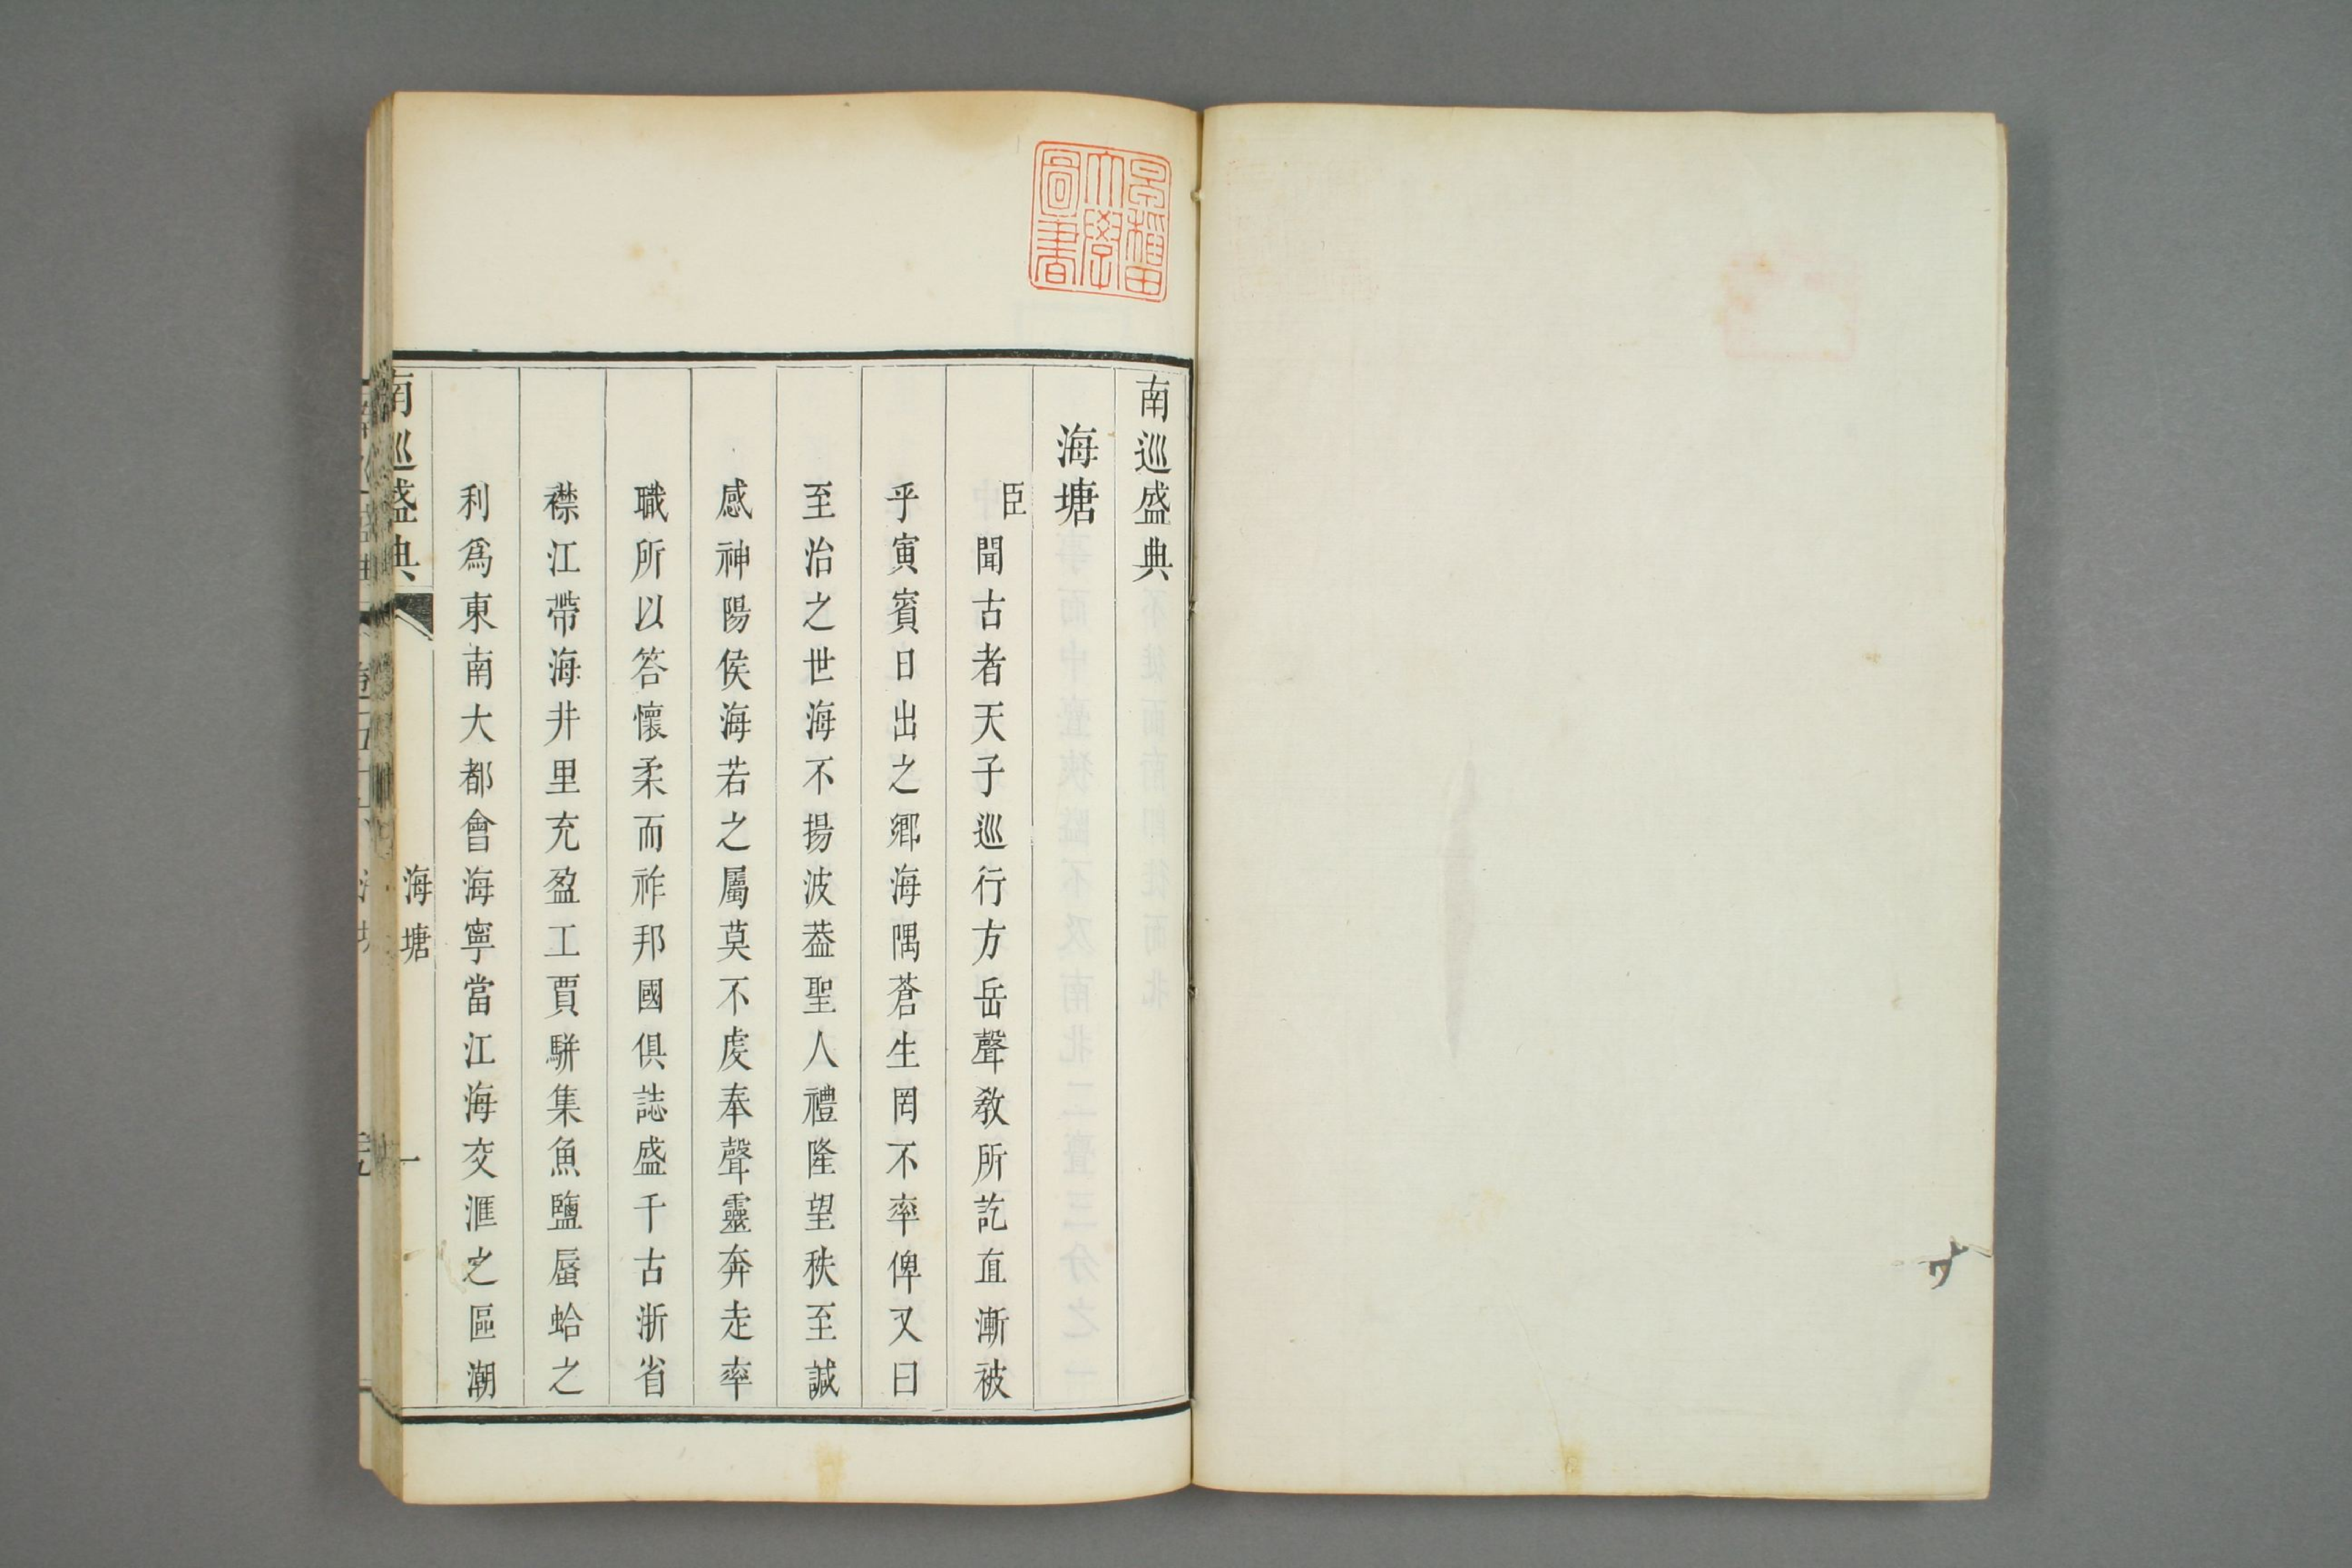 南巡盛典
海塘
臣聞古者天子巡行方岳聲教所訖直漸被
乎寅賓日出之鄉海隅蒼生罔不率俾又曰
至治之世海不揚波葢聖人禮隆望秩至誠
感神陽侯海若之屬莫不虔奉聲靈奔走率
職所以答懷柔而祚邦國俱誌盛千古浙省
襟江帶海井里充盈工賈駢集魚鹽蜃蛤之
利爲東南大都會海寧當江海交滙之區潮
南巡盛典
海塘
一
早稻田
大學
圖書